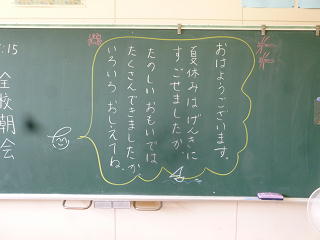 おはようございます。
夏休みはげんきに
すごせましたか。
たのしいおもいでは
たくさんできましたか。
いろいろおしえてね。
:15
全校朝会